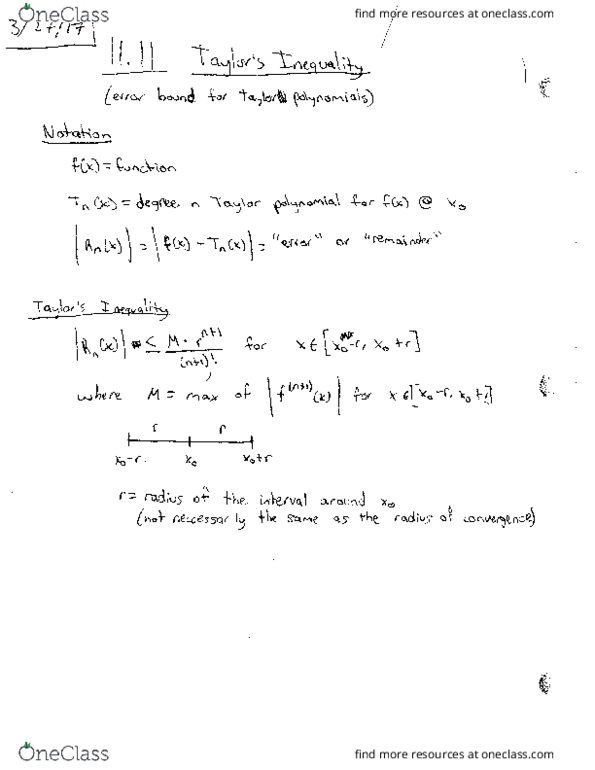 OneClass
find more resources at oneclass.com
3/27/17
11.11 Taylor's Inequality
(error bound for Taylor polynomials)
Notation
f(x) = function
Tn(x) = degree n Taylor polynomial for f(x) @ x₀
|Rn(x)| = |f(x) - Tn(x)| = "error" or "remainder"
Taylor's Inequality
|Rn(x)| ≤ M · r^(n+1) / (n+1)! for x ∈ [x₀-r, x₀+r]
where M = max of |f^(n+1)(x)| for x ∈ [x₀-r, x₀+r]
r r
x₀-r x₀ x₀+r
r = radius of the interval around x₀
(not necessarly the same as the radius of convergence)
OneClass
find more resources at oneclass.com